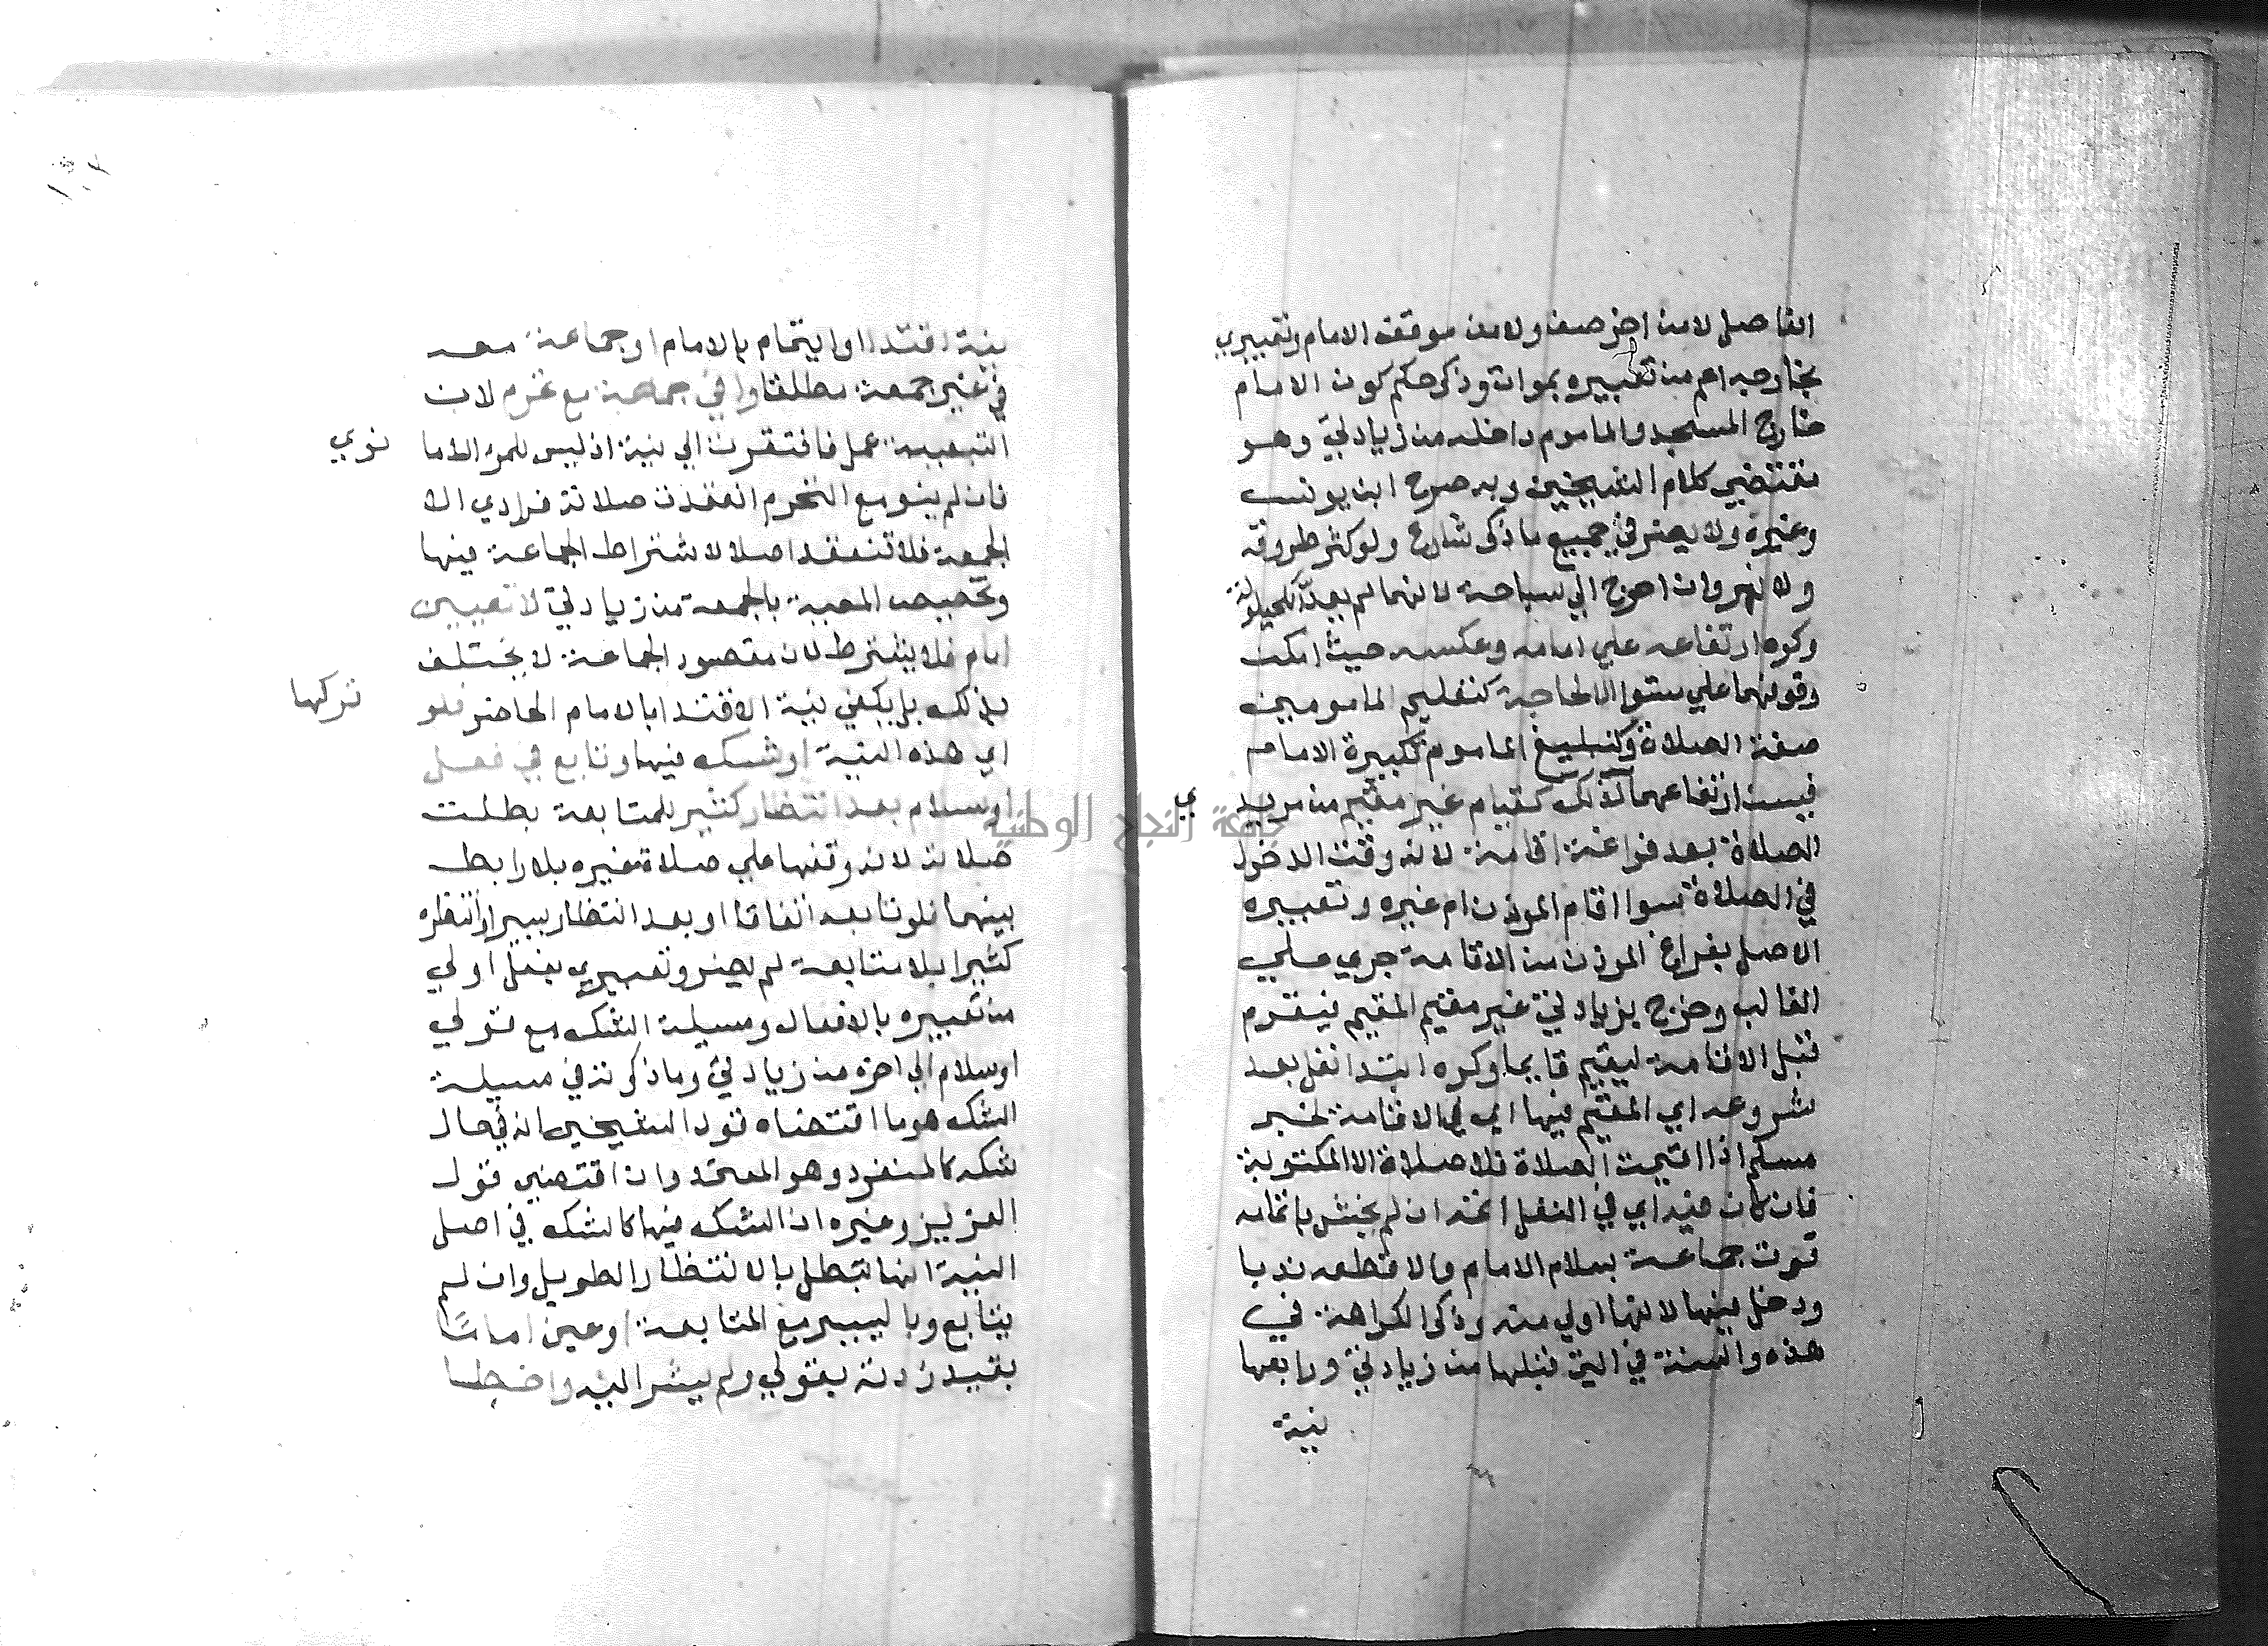 الفاصل لا من اخر صف ولا من موقف الامام وتعبيري
بخارجه اعم من تعبيره بموات وذكر حكم كون الامام
خارج المسجد والماموم داخله من زيادتي وهو
مقتضي كلام الشيخين وبه صرح ابن يونس
وغيره ولا يضر في جميع ما ذكر شارع ولو كثر طروقه
ولا نهر وان احوج الي سباحة لانهما لم يعدّا للحيلولة
وكره ارتفاعه علي امامه وعكسه حيث امكن
وقوفهما علي مستوا الا لحاجة كتعليم المامومين
صفة الصلاة وكتبليغ الماموم تكبيرة الامام
فيسن ارتفاعهما لذلك كقيام غير مقيم من مريد ي
الصلاة بعد فراغ اقامة لانه وقت الدخول
في الصلاة سوا اقام الموذن ام غيره وتعبيره
الاصل بفراغ الموذن من الاقامة جري علي
الغالب وخرج بزيادتي غير مقيم المقيم فيقوم
قبل الاقامة ليقيم قايما وكره ابتدا نفل بعد
شروعه اي المقيم فيها اي في الاقامة لخبر
مسلم اذا اقيمت الصلاة فلا صلاة الا المكتوبة
فان كان فيه اي في النفل اتمه ان لم يخش باتمامه
فوت جماعة بسلام الامام والا قطعه ندبا
ودخل فيها لانها اولي منه وذكر الكراهة في
هذه والسنة في التي قبلها من زيادتي ورابعها
نية
نية اقتدا او ايتمام بالامام او جماعة معه
في غير جمعة مطلقا وفي جماعة مع تحرم لان
التبعية عمل فافتقرت الي نية اذ ليس للمرء الا ما نوي
فان لم ينو مع التحرم انعقدت صلاته فرادي الا
الجمعة فلا تنعقد اصلا لاشتراط الجماعة فيها
وتخصيص المعية بالجمعة من زيادتي لا تعيين
امام فلا يشترط لان مقصود الجماعة لا يختلف
بذلك بل يكفي نية الاقتدا بالامام الحاضر فلو تركها
اي هذه النية او شك فيها وتابع في فعل
او سلام بعد انتظار كثير للمتابعة بطلت
صلاته لانه وقفها علي صلاة غيره بلا رابط
بينهما فلو تابعه اتفاقا او بعد انتظار يسير او انتظره
كثيرا بلا متابعة لم يضر وتعبيري بفعل اولي
من تعبيره بالافعال ومسيلة الشك مع قولي
او سلام الي اخره من زيادتي وما ذكرته في مسيلة
الشك هو ما اقتضاه قول الشيخين انه في حال
شكه كالمنفرد وهو المعتمد وان اقتضي قول
العزيز وغيره ان الشك فيها كالشك في اصل
النية انها تبطل بالانتظار الطويل وان لم
يتابع وباليسير مع المتابعة او عين اماما
بقيد زدته بقولي ولم يشر اليه واخطا
جامعة النجاح الوطنية